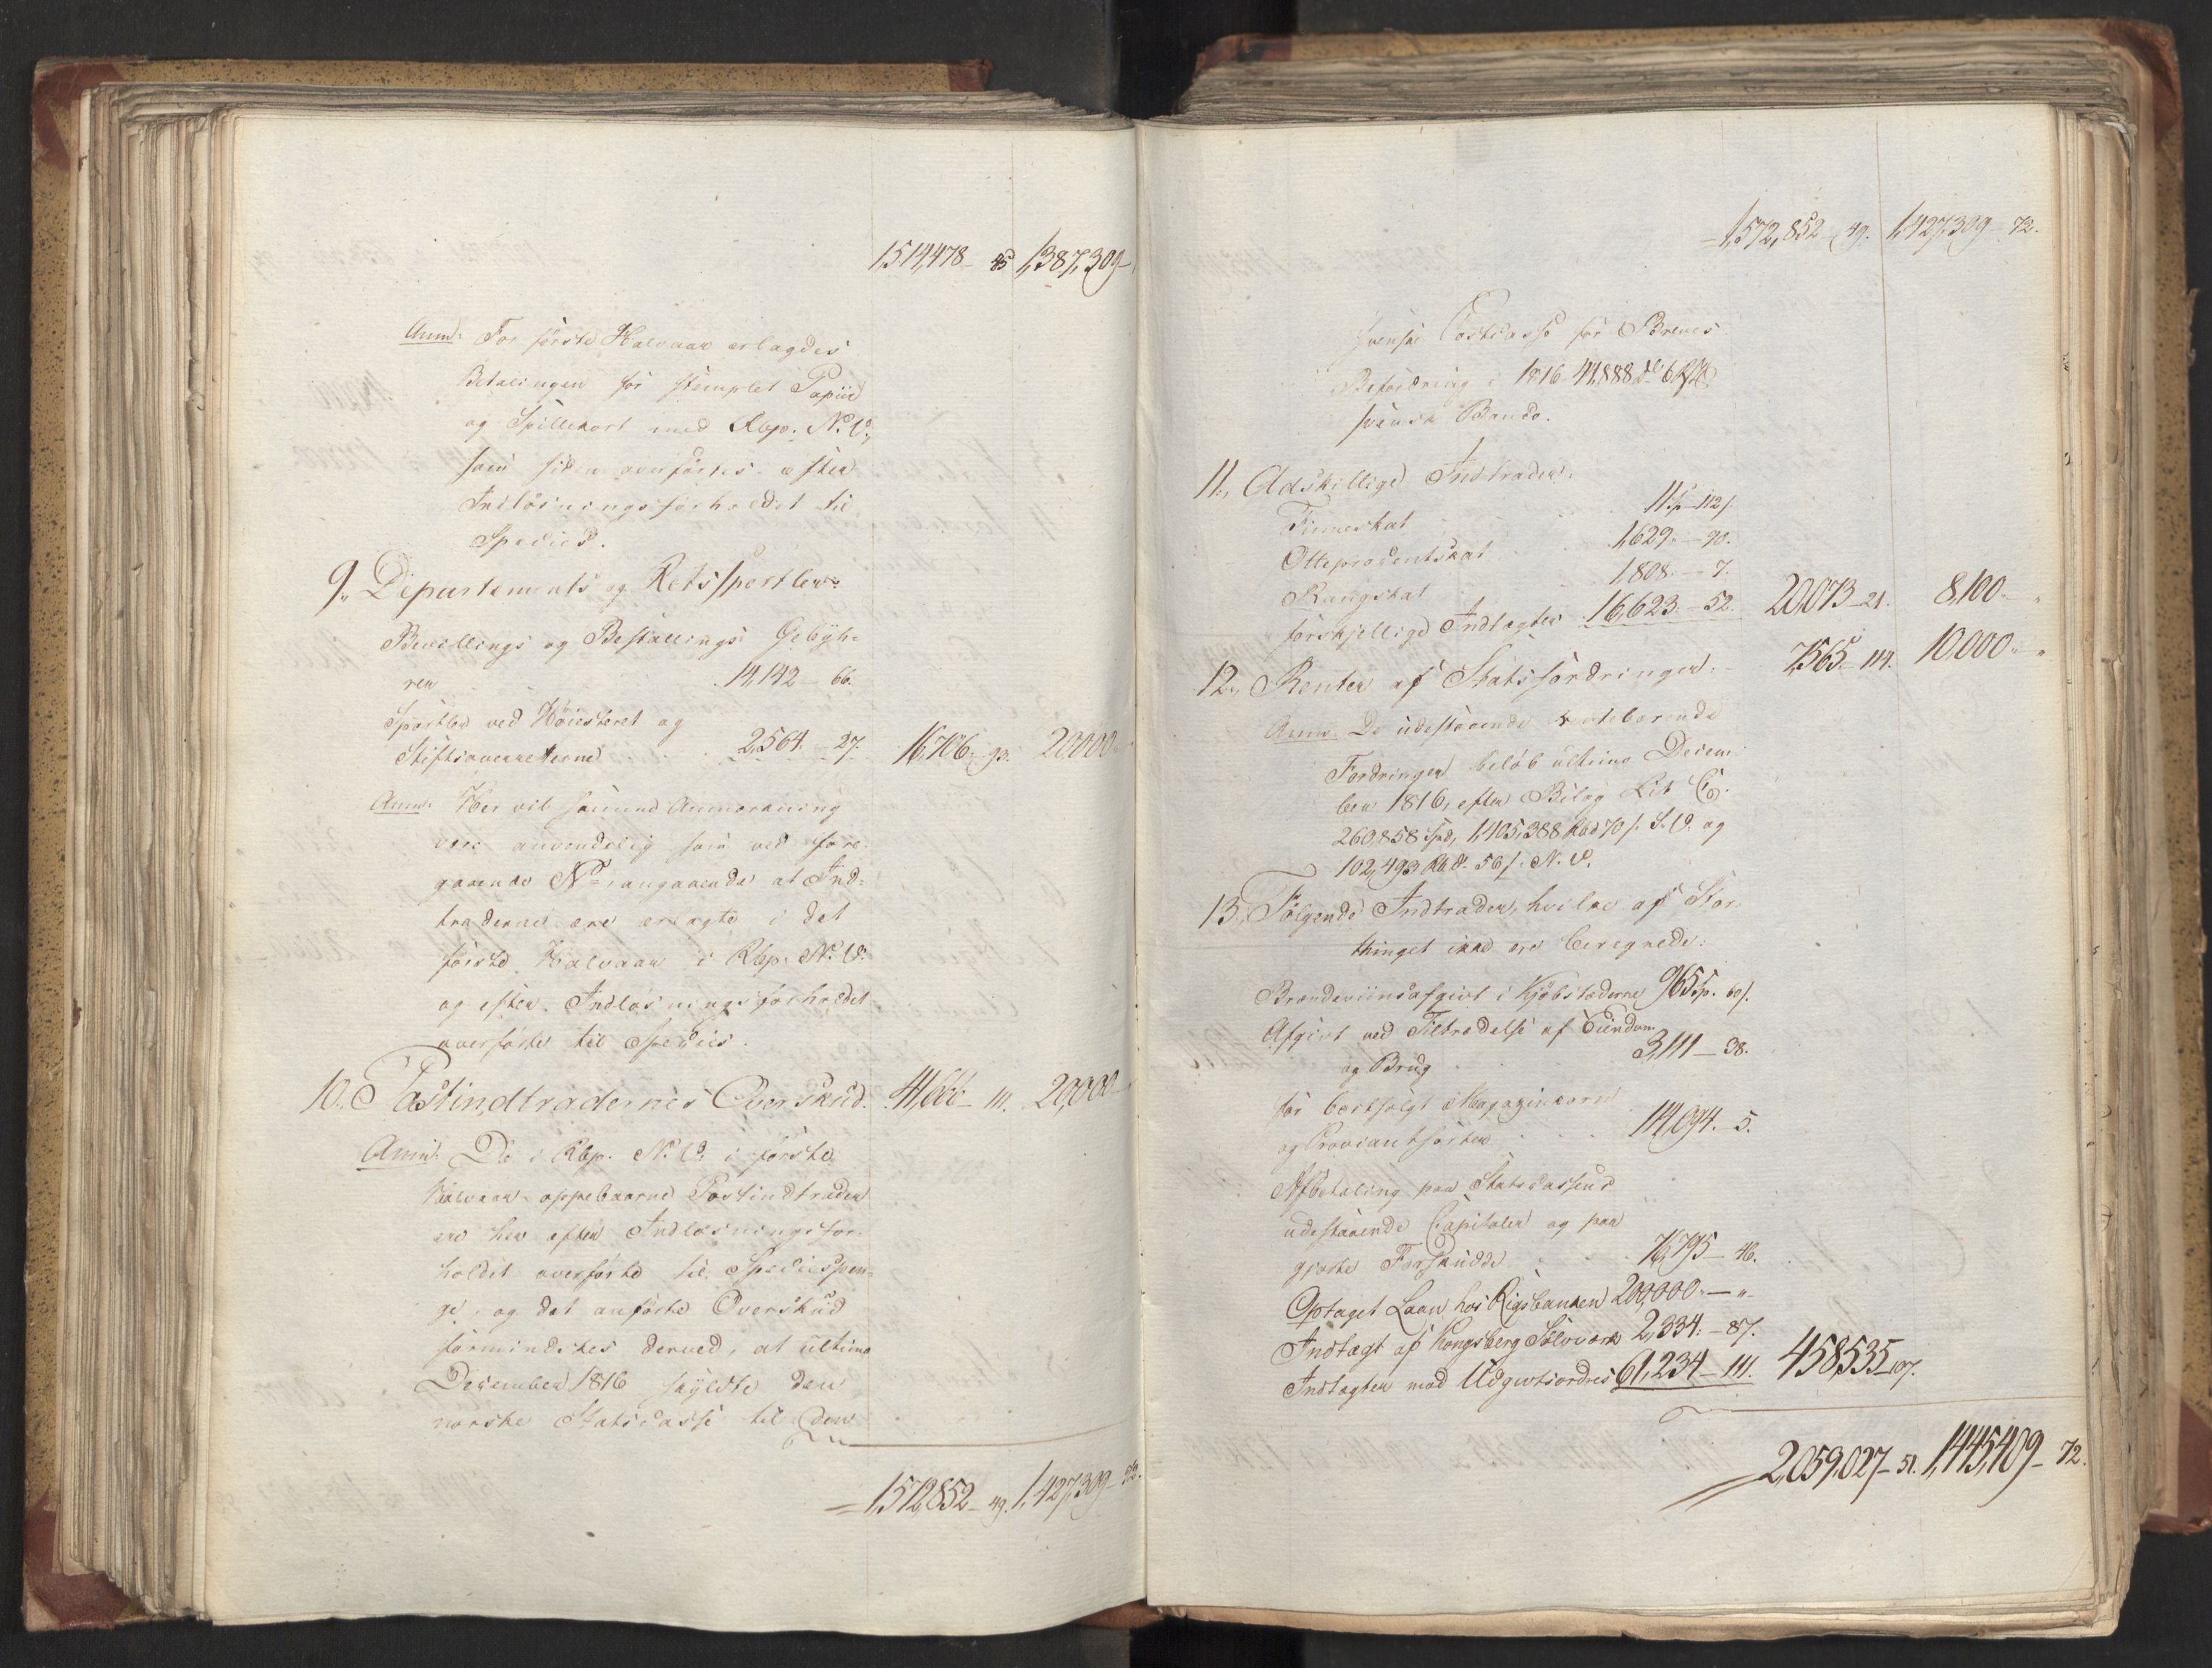 1,514,478 - 85 1,387,309 -
Anm: For første Halvaar erlagdes
Betalingen for stemplet Papiir
og Spillekort med Rbp. N. V.,
som siden overførtes efter
Indløsningsforholdet til
Species.
9., Departements og Retssportler:
Bevillings og Bestallings Gebyh-
rer . 14,142 - 66.
Sportler ved Høiesteret og
Stiftsoverretterne . . . 2,564. - 27. 16,706 - 93. 20,000
Anm: Her vil samme Anmærkning
være anvendelig som ved fore-
gaaende No, angaaende at Ind-
traderne ere erlagte i det
første Halvaar i Rbp: N. V.
og efter Indløsningsforholdet
overførte til Species.
10., Postindtradernes Overskud. 41,666 - 111. 20,000 -
Anm: De i Rbp. N. V. i første
Halvaar oppebaarne Postindtrader
ere her efter Indløsningsfor-
holdet overførte til Speciespen-
ge, og det anførte Overskud
formindskes derved, at ultimo
December 1816 skyldte den
norske Statscasse til den
= 1,572,852 - 49. 1,427,309 - 72.
= 1,572,852 - 49. 1,427,309 - 72.
svenske Postcasse for Breves
Befordring i 1816 41,888 6
svensk Banco.
11., Adskillige Indtrader:
Tiineskat 11 Sp - 112 s.
Otteprocentskat . . . 1,629. - 90.
Rangskat . . . 1,808. - 7.
forskjellige Indtægter 16,623. - 52. 20,073 - 21. 8,100. - "
12., Renter af Statsfordringer. - 7,565. - 114. 10,000 " "
Anm: De udestaaende rentebærende
Fordringer beløb ultimo Decem-
ber 1816, efter Bilag Lit
260,858 Spd, 1,405,388 Rbd 70 s. S. V. og
102,493 Rbd. 56 s. N. V.
13., Følgende Indtrader, hvilke af Stor-
thinget ikke ere beregnede:
Brændeviinsafgivt i Kjøbstæderne 965 Sp. 60 s.
Afgivt ved Tiltrædelse af Eiendom
og Brug . 3,111 - 38.
for bortsolgt Magazinkorn
og Proviantsorter . . . 114,094. - 5.
Afbetaling paa Statscassens
udestaaende Capitaler og paa
gjorte Forskudde . . . 76,795 - 46.
Optaget Laan hos Rigsbanken 200,000 " - "
Indtægt af Kongsberg Sølvværk 2,334. - 87.
Indtægter mod Udgivtsordres 61,234 - 111. 458,535 - 107.
= 2,059,027 - 51. 1,445,409 - 72.